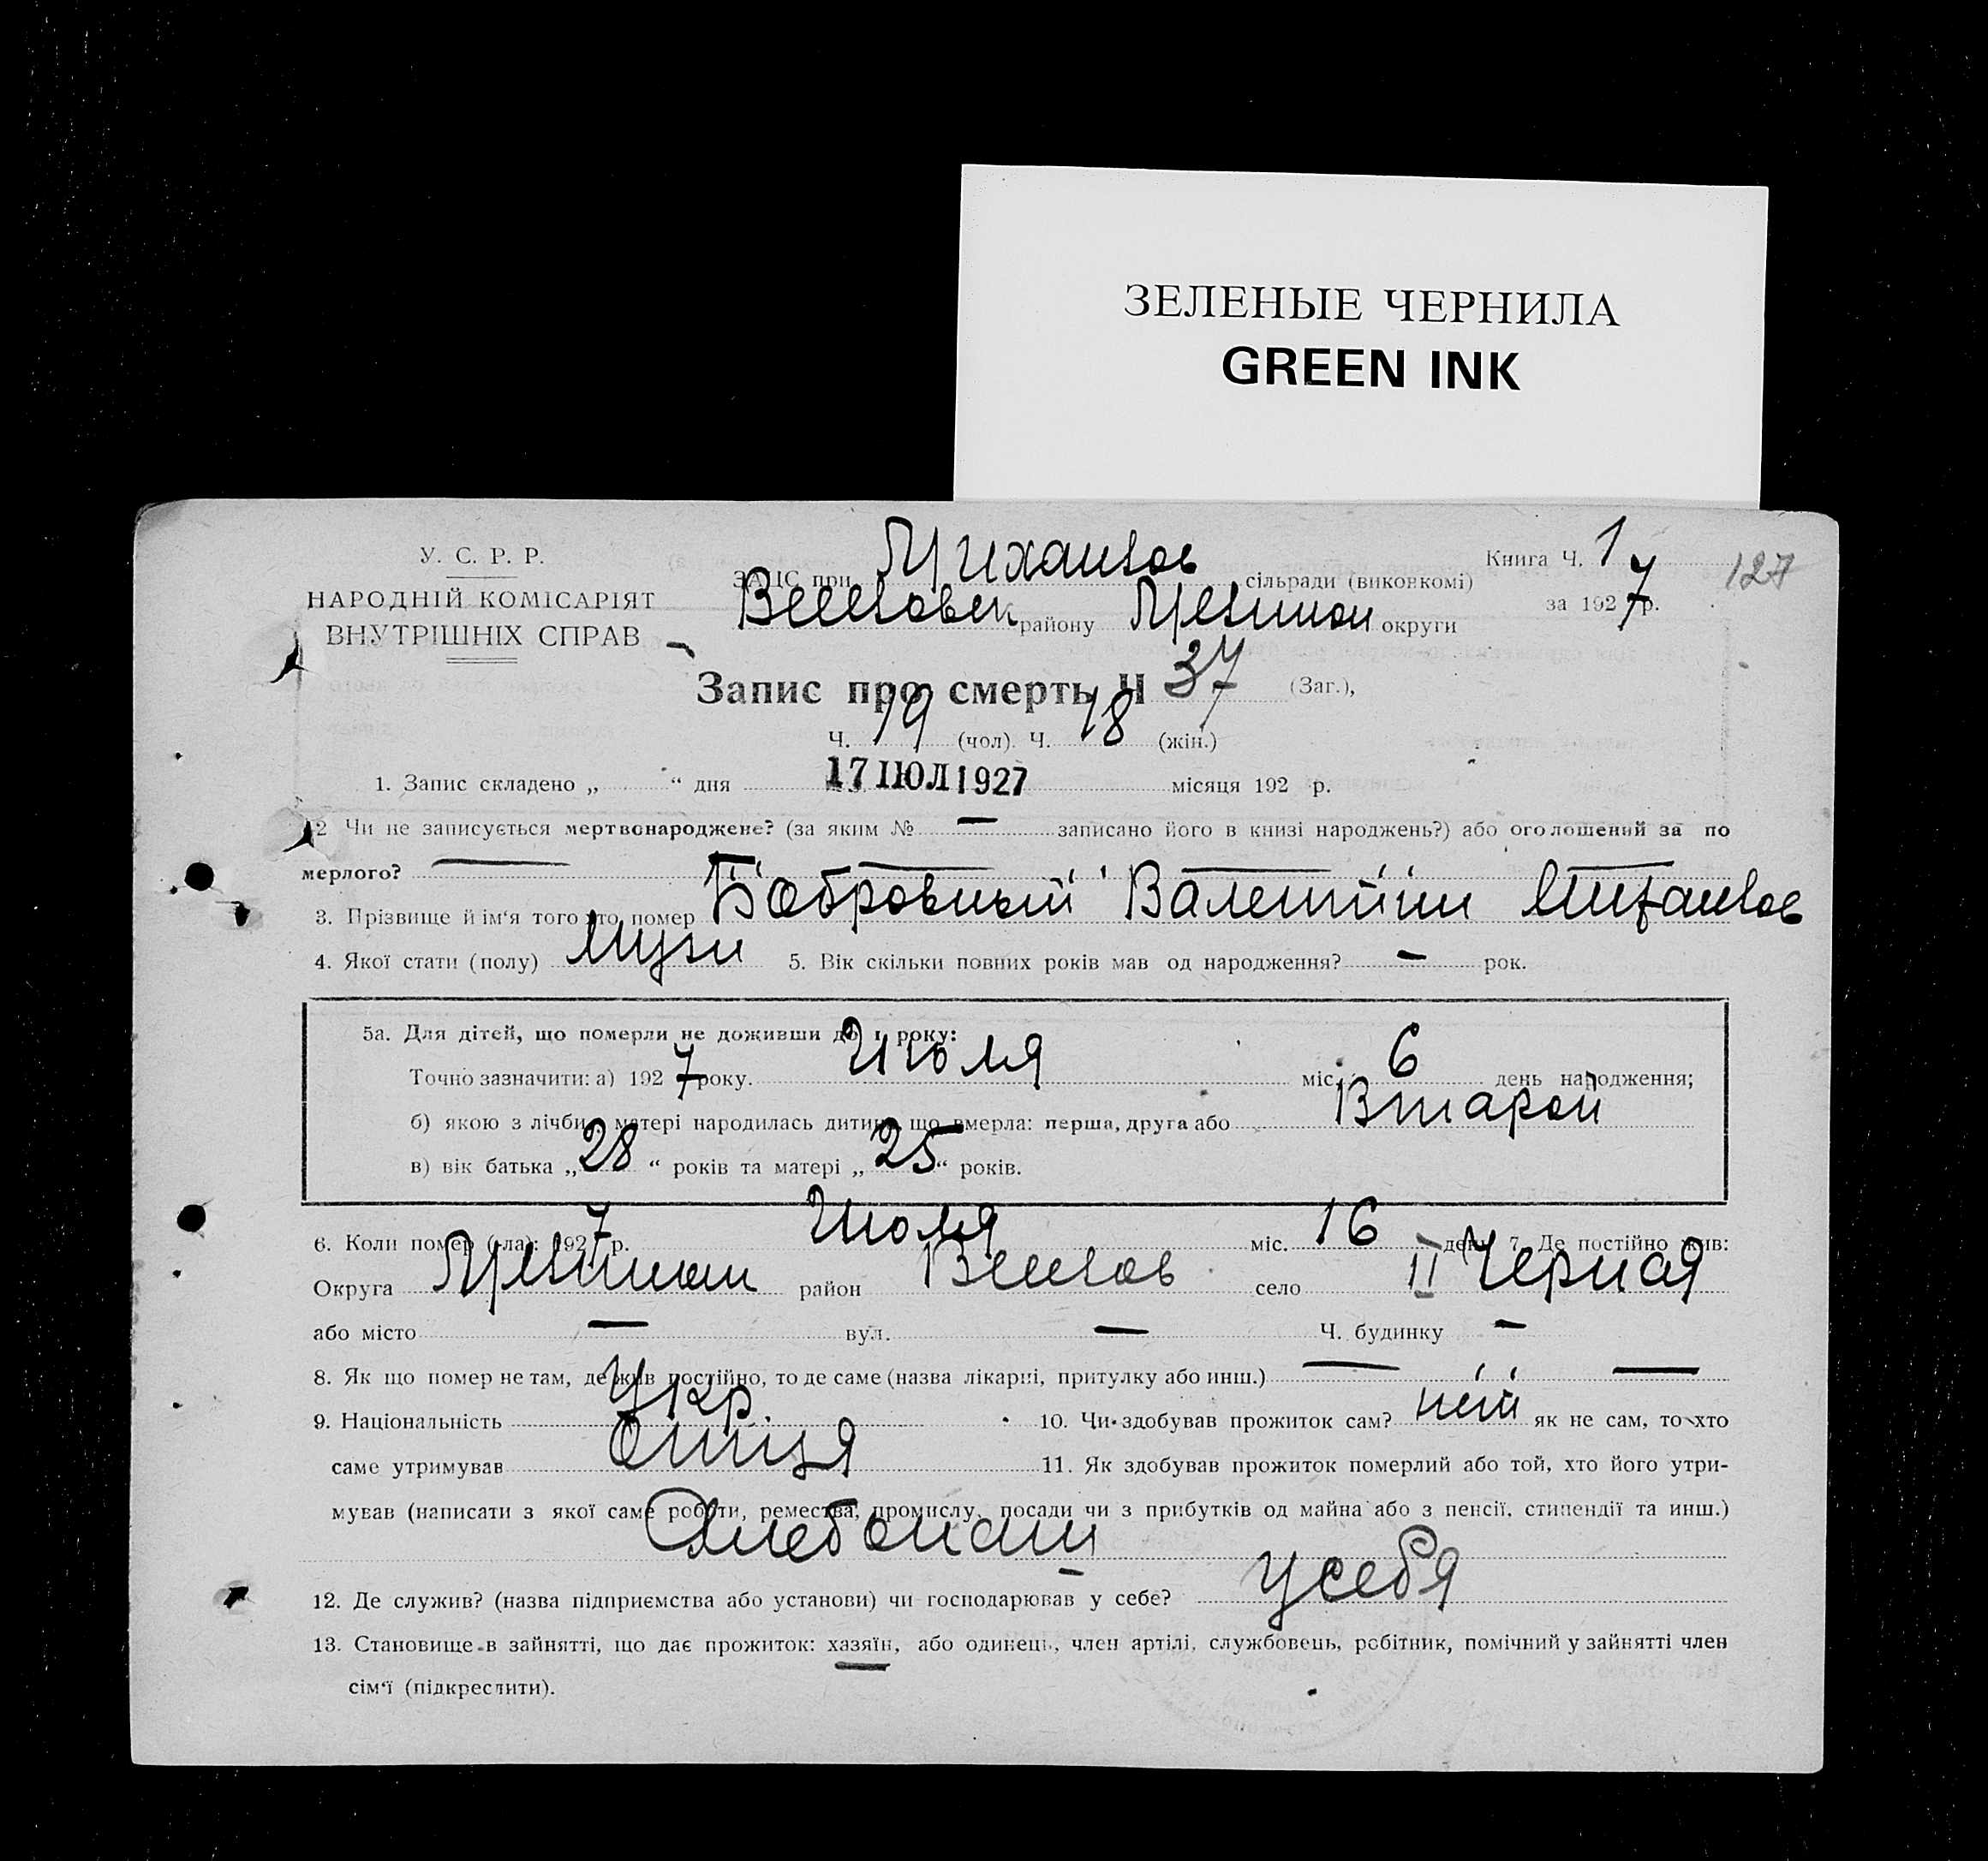 ЗЕЛЕНЫЕ ЧЕРНИЛА
GREEN INK
У. С. Р. Р.
НАРОДНІЙ КОМІСАРІЯТ
ВНУТРІШНІХ СПРАВ
Книга Ч. 1
127
ЗАЦС при сільради (виконкомі)
за 1927 р.
району округи
Запис про смерть Ч 37 (Заг.),
Ч. 19 (чол). Ч. 18 (жін.)
1. Запис складено „ “ дня 17 ІЮЛ 1927 місяця 192 р.
2 Чи не записується мертвонароджене? (за яким № — записано його в книзі народжень?) або оголошений за по
мерлого? —
3. Прізвище й ім‘я того хто помер Бобровный Валентин
4. Якої стати (полу) Мужи 5. Вік скільки повних років мав од народження? — рок.
5а. Для дітей, що померли не доживши до 1 року:
Точно зазначити: а) 1927 року. Июля міс. 6 день народження;
б) якою з лічби у матері народилась дитина що вмерла: перша, друга або Второй
в) вік батька „28“ років та матері „25“ років.
6. Коли помер (ла): 1927 р. Июля міс. 16 день 7. Де постійно жив:
Округа район село II Черная
або місто — вул. — Ч. будинку —
8. Як що помер не там, де жив постійно, то де саме (назва лікарні, притулку або инш.) — —
9. Національність Укр. 10. Чи здобував прожиток сам? ній як не сам, то хто
саме утримував Отиця 11. Як здобував прожиток померлий або той, хто його утри-
мував (написати з якої саме роботи, ремества, промислу, посади чи з прибутків од майна або з пенсії, стипендії та инш.)
Хлебопаш
12. Де служив? (назва підприємства або установи) чи господарював у себе? у себя
13. Становище в зайнятті, що дає прожиток: хазяїн, або одинець, член артілі, службовець, робітник, помічний у зайнятті член
сім‘ї (підкреслити).